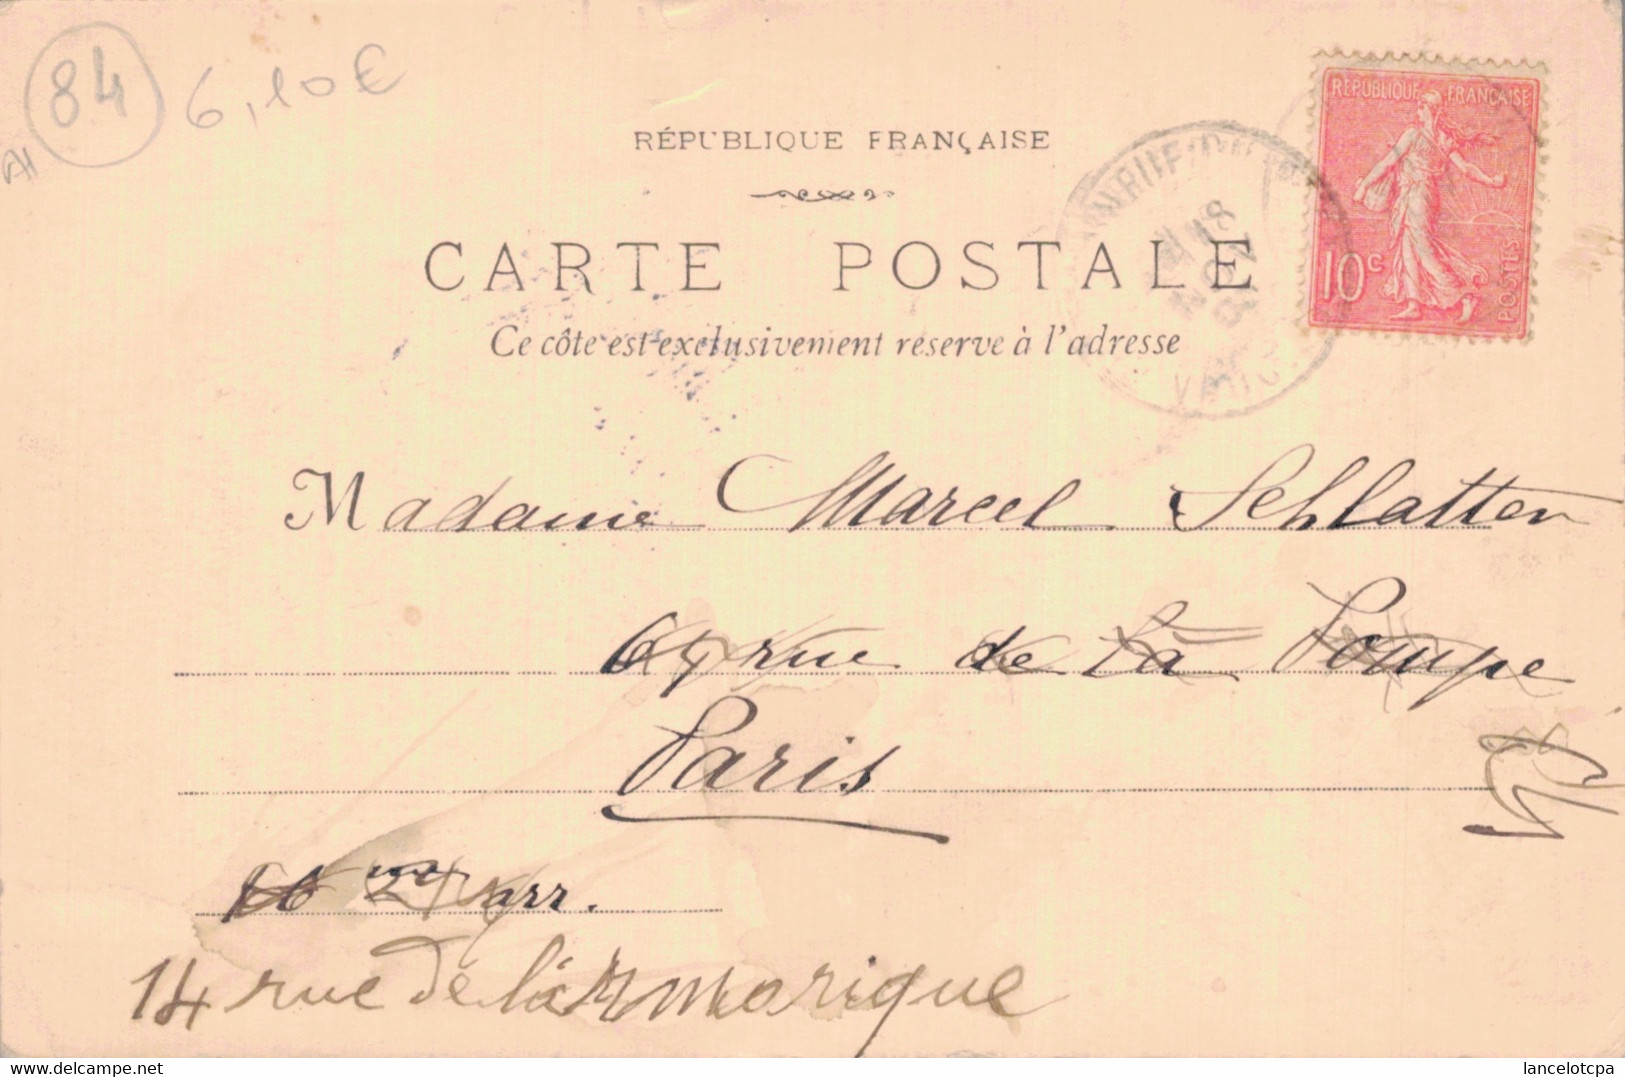 84
6,10€
AH
RÉPUBLIQUE FRANÇAISE
RÉPUBLIQUE FRANÇAISE
10c
POSTES
CARTE POSTALE
Ce côté est exclusivement réservé à l'adresse
Madame Marcel Schlatter
69 rue de La Pompe
Paris
16me arr.
14 rue de l'Armorique
Delcampe.net
lancelotcpa